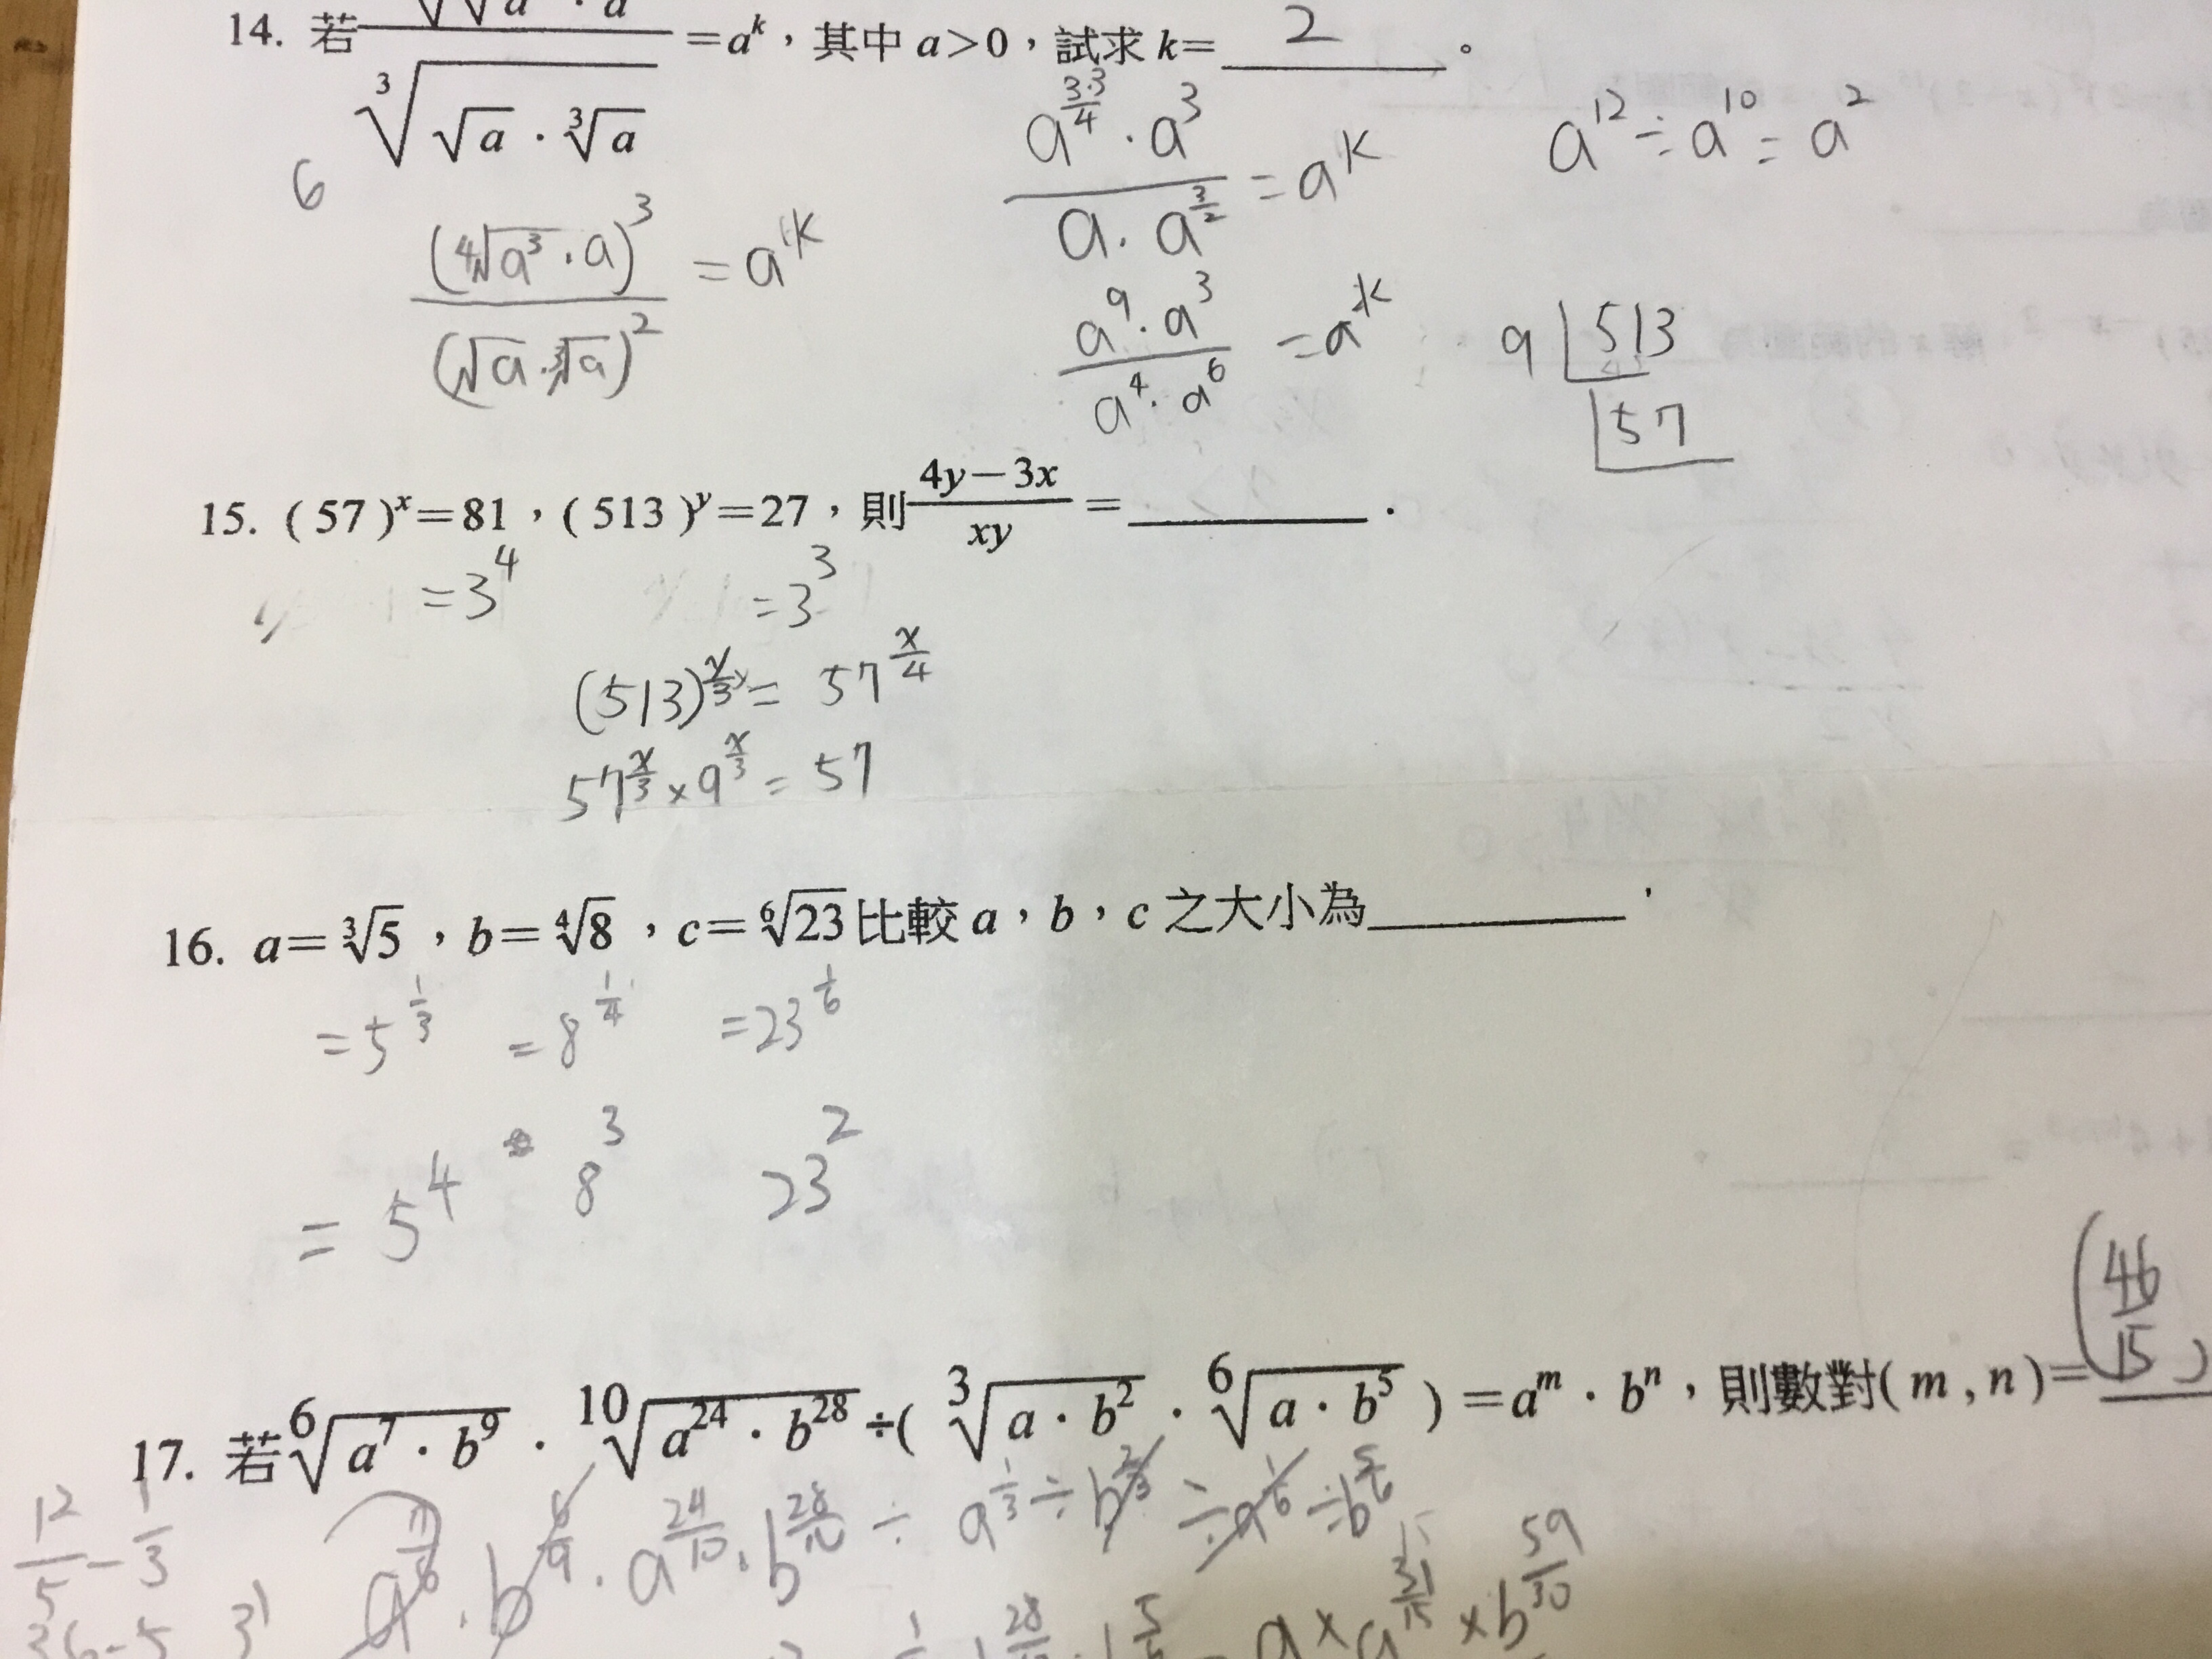 14. 若 √√a · a / ∛(√a · ∛a) = a^k，其中 a>0，試求 k= 2 。
6
(∜a³ · a)³ / (√a · ∛a)² = a^k
a^(3·3/4) · a³ / a · a^(3/2) = a^k
a¹² ÷ a¹⁰ = a²
a⁹ · a³ / a⁴ · a⁶ = a^k
9 513
57
15. (57)^x=81，(513)^y=27，則 (4y−3x)/xy = ______.
=3⁴ =3³
(513)^(y/3) = 57^(x/4)
57^(x/3) × 9^(x/3) = 57
16. a=∛5，b=∜8，c=⁶√23 比較 a，b，c 之大小為______.
=5^(1/3) =8^(1/4) =23^(1/6)
= 5⁴ 8³ 23²
17. 若 ⁶√(a⁷ · b⁹) · ¹⁰√(a²⁴ · b²⁸) ÷ ( ∛(a · b²) · ⁶√(a · b⁵) ) = a^m · b^n，則數對(m , n)= (46/15 )
12/5 − 1/3
a^(7/6) · b^(6/9) · a^(24/10) · b^(28/10) ÷ a^(1/3) ÷ b^(2/3) ÷ a^(1/6) ÷ b^(5/6)
36-5 31
a × a^(31/15) × b^(59/30)